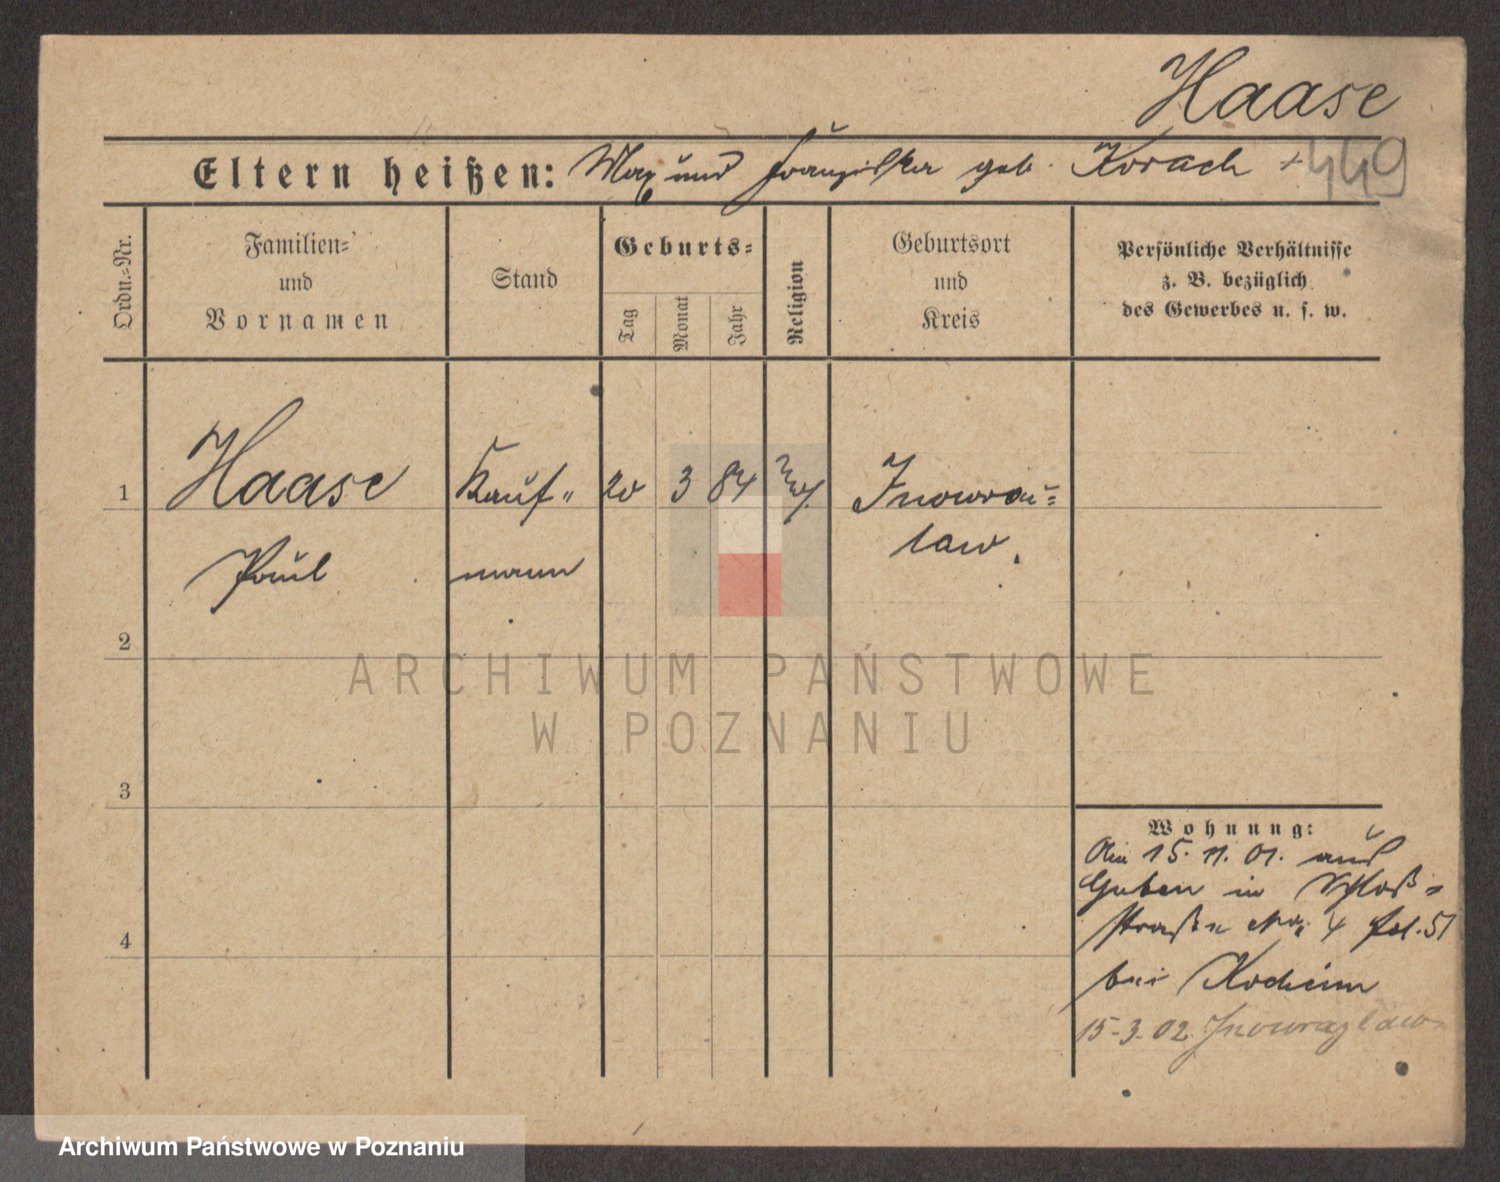 Haase
Eltern heißen: Max und Franziska geb. Korach +
449
Ordn.=Nr.
Familien=
und
Vornamen
Stand
Geburts=
Tag
Monat
Jahr
Religion
Geburtsort
und
Kreis
Persönliche Verhältnisse
z. B. bezüglich
des Gewerbes u. s. w.
1
Haase
Paul
Kauf"
mann
20
3
84
Inowraz=
law.
2
3
4
Wohnung:
Am 15. 11. 01. aus
Guben in Schloß=
straße No. 4 pol. 51
bei Kocheim
15-3-02. Inowrazlaw
ARCHIWUM PAŃSTWOWE
W POZNANIU
Archiwum Państwowe w Poznaniu